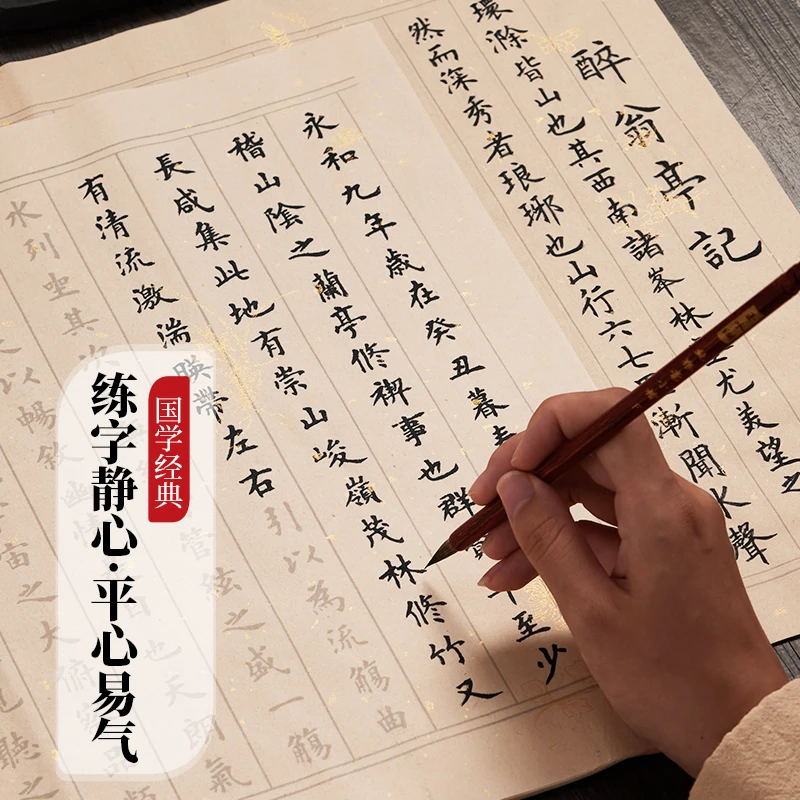 醉翁亭記
環滁皆山也其西南諸峯林尤美望之
然而深秀者琅琊也山行六七漸聞水聲
永和九年歲在癸丑暮
稽山陰之蘭亭修禊事也群至少
長咸集此地有崇山峻嶺茂林修竹又
有清流激湍暎帶左右引以為流觴曲
水列坐其次管絃之盛一觴
以暢敘幽情也天朗氣
宙之大俯察品類
聽之
国学经典
练字静心·平心易气